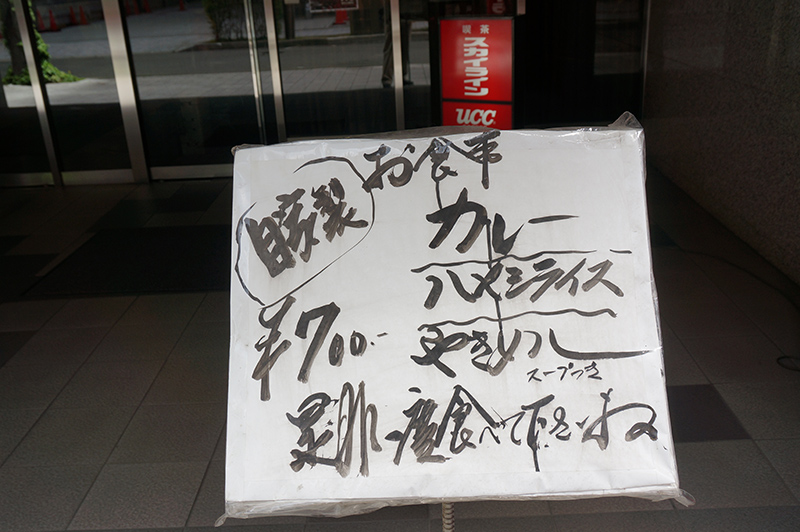 喫茶
スカイライン
UCC
お食事
自家製
カレー
ハヤシライス
¥700.-
やきめし
スープつき
是非一度食べて下さいね